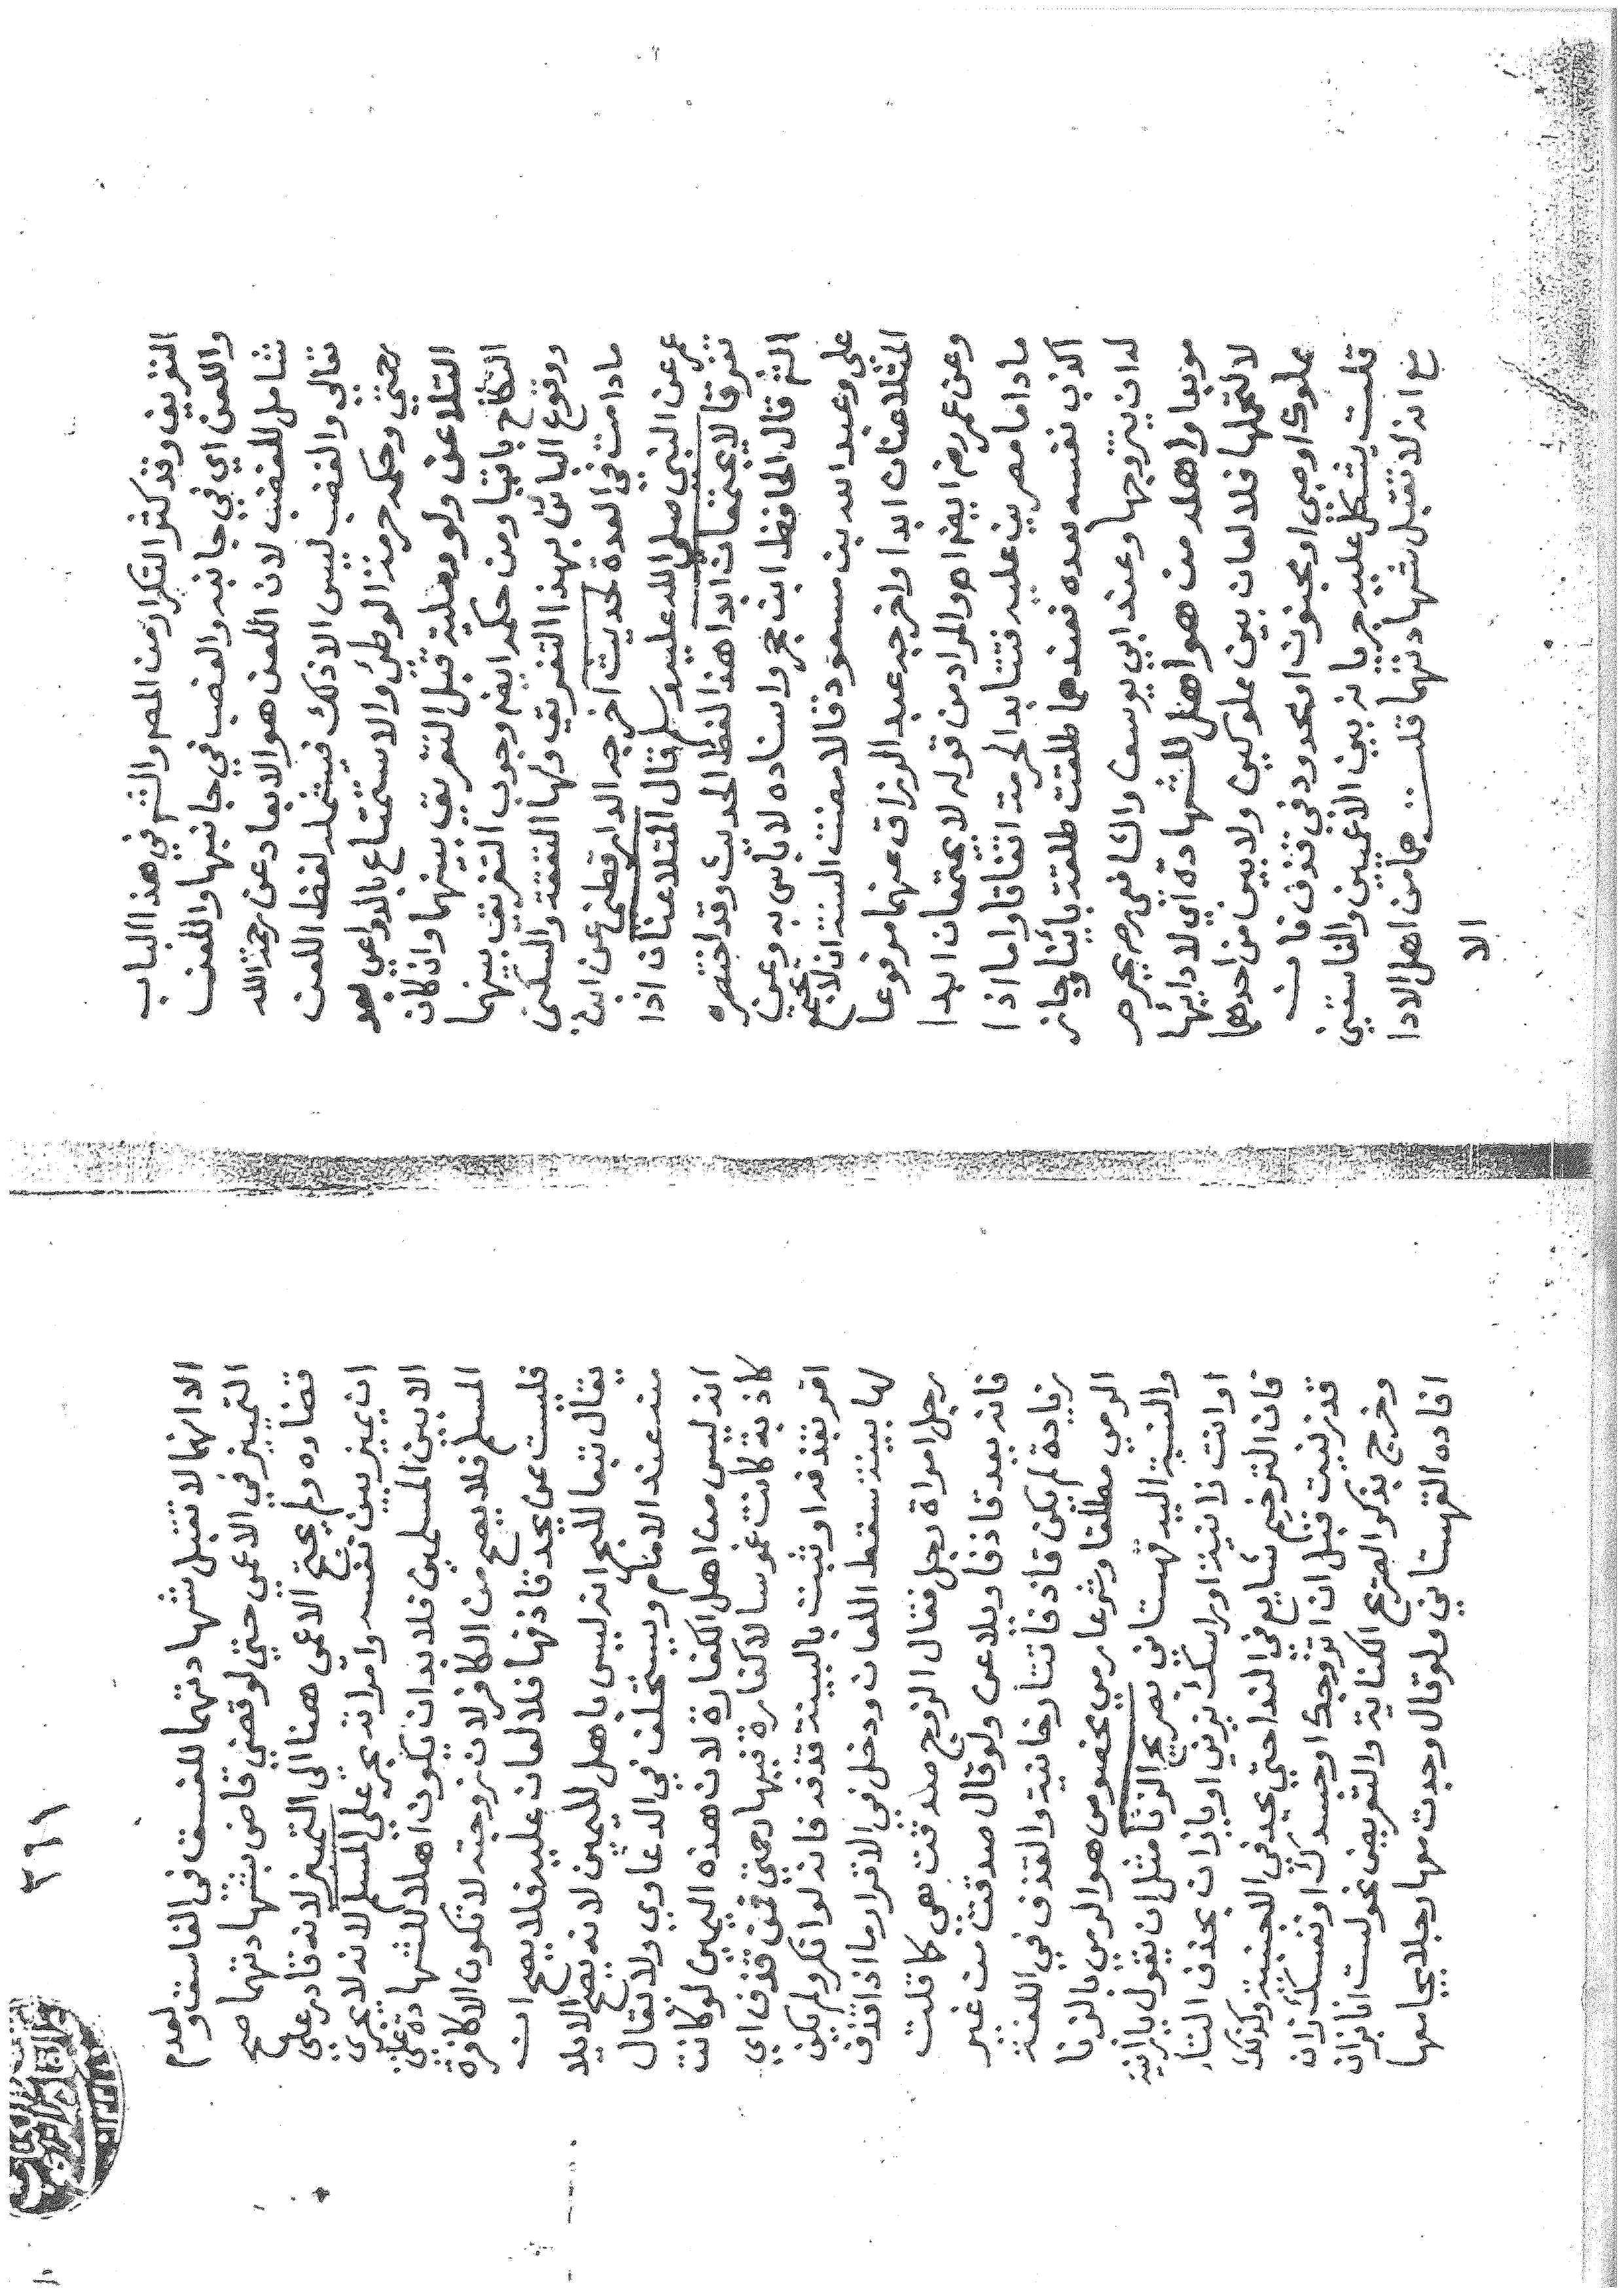 التفريق وقد كثر التكرار من المص والشم في هذا الباب
واللعن اي في جانبه والغضب في جانبها واللعن
شامل للغضب لان اللعن هو الابعاد عن رحمة الله
تعالى والغضب ليس الا ذلك فيشمله لفظ اللعن
حتي وحكمه حرمة الوطئ والاستمتاع بالدواعي بعد
التلاعن ولو وصلية قبل التفريق بينهما وان كان
النكاح باقيا ومن حكمه ايضا وجوب التفريق بينهما
ووقوع البائن بهذا التفريق ولها النفقة والسكنى
مادامت في العدة لحديث اخرجه الدارقطني عن ابن
عمر عن النبي صلي الله عليه وسلم قال المتلاعنان اذا
تفرقا لا يجتمعان ابدا هذا لفظ الحديث وقد اختصره
الشم قال الحافظ ابن حجر واسناده لا باس به وعن
علي وعبد الله بن مسعود قالا مضت السنة ان لا يجتمع
المتلاعنان ابدا واخرجه عبد الرزاق عنهما مرفوعا
وعن عمر رض ايضا اهـ والمراد من قوله لا يجتمعان ابدا
ما داما مصرين عليه فتتابد الحرمة اتفاقا واما اذا
اكذب نفسه بعده فعندهما طلقت طلقة بائنا وجاز
له ان يتزوجها وعند ابي يوسف والشافعي رح يحرم
موبدا واهله من هو اهل للشهادة اي لادائها
لا لتحملها فلا لعان بين مملوكين ولا بين من احدهما
مملوك او صبي او مجنون او محدود في قذف فان
قلت يشكل عليه جريانه بين الاعميين والفاسقين
مع انه لا تقبل شهادتهما قلت هما من اهل الادا
الا
٢٦١
الا انهما لا تقبل شهادتهما للفسق في الفاسق ولعدم
التمييز في الاعمى حتي لو قضي قاض بشهادتهما صح
قضاوه ولم يحتج الاعمي هنا الى التمييز لانه قادر علي
ان يميز بين نفسه وامراته بحر علي المسلم لانه لا يجري
الا بين المسلمين فلا بد ان يكون اهلا للشهادة علي
المسلم فلا يصح من الكافر لان زوجته لا تكون الا كافرة
فليست ممن يحد قاذفها فلا لعان عليه فلا يصح ان
يقال تبعا للبحر انه ليس باهل لليمين لانه يصح الايلا
منه عند الامام ويستحلف في الدعاوي ولا يقال
انه ليس من اهل الكفارة لان هذه اليمين لو كانت
كاذبة كانت غموسا لا كفارة فيها رحمتي فمن قذف اي
اقر بقذفه او ثبت بالبينة قذفه فانه لو انكر ولم يكن
لها بينة سقط اللعان ودخل في الاقرار ما اذا قذف
رجل امراة رجل فقال الزوج صدقت هي كما قلت
فانه يعد قاذفا ويلاعن ولو قال صدقت من غير
زيادة لم يكن قاذفا تتارخانية والقذف في اللغة
الرمي مطلقا وشرعا رمي مخصوص هو الرمي بالزنا
والنسبة اليه قهستاني بصريح الزنا مثل ان يقول يا زانية
او انت زانية او راسك زني او يازان بحذف التاء
فان الترخيم شايع في الندا حتي يحد في الاجنبية وكذلك
قد زنيت قبل ان اتزوجك او جسدك او نفسك زان
وخرج بذكر الصريح الكناية والتعريض نحو لست انا بزان
افاده القهستاني ولو قال وجدت معها رجلا يجامعها